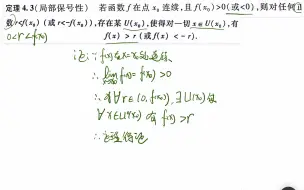 定理 4.3(局部保号性) 若函数 f 在点 x₀ 连续,且 f(x₀)>0(或<0),则对任何正
数 r<f(x₀) (或 r<-f(x₀)),存在某 U(x₀),使得对一切 x∈U(x₀),有
0<r<f(x₀)
f(x) > r (或 f(x) < -r).
证: ∵ f(x)在x=x₀处连续
∴ lim f(x)=f(x₀) >0
∴ 对∀r∈(0, f(x₀)), ∃U(x₀)使
∀x∈U(x₀) 有 f(x)>r
∴ 定理得证